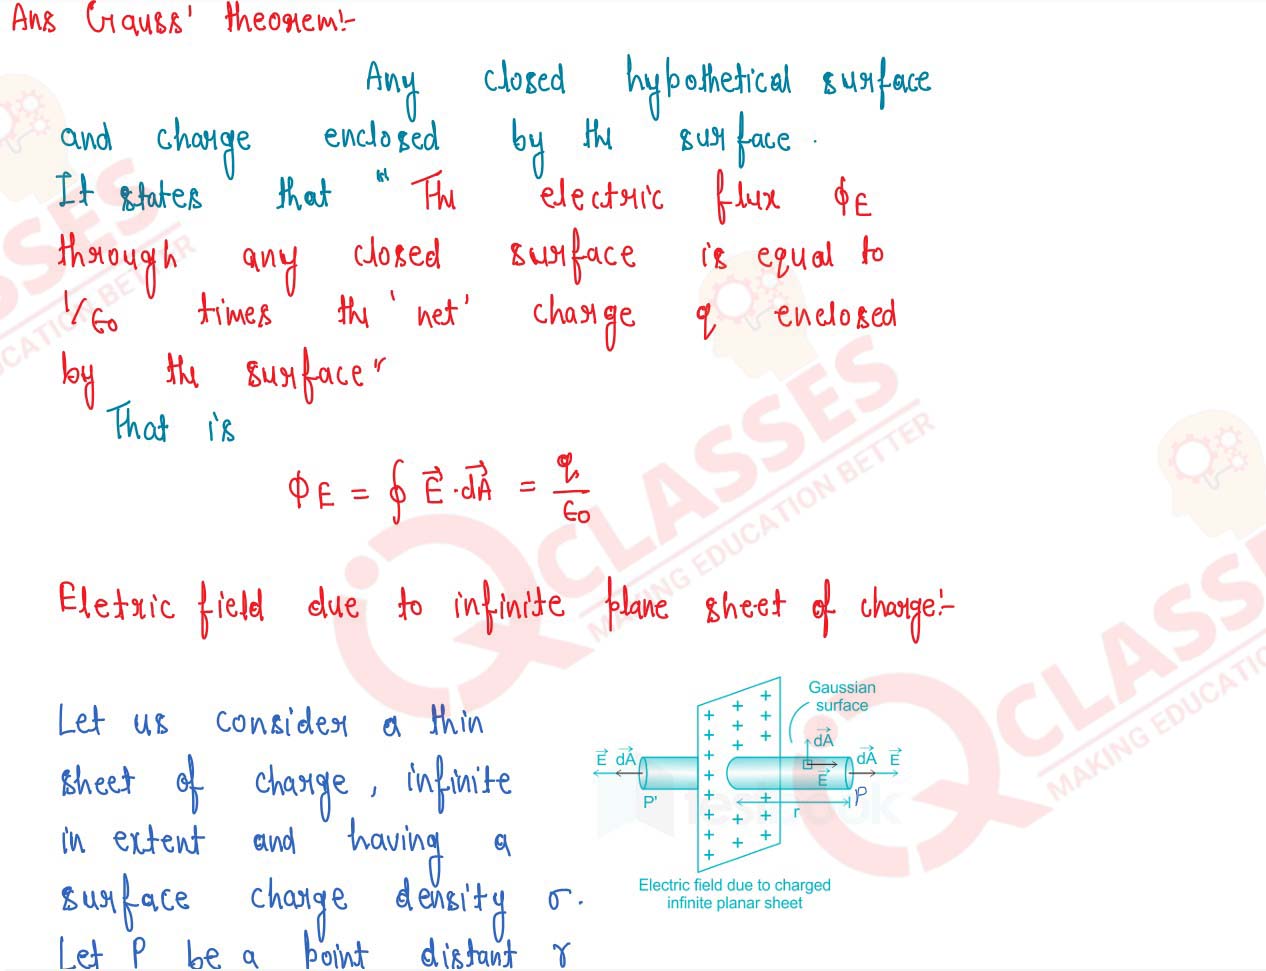 Ans Gauss' theorem:-
Any closed hypothetical surface
and charge enclosed by the surface.
It states that "The electric flux ΦE
through any closed surface is equal to
1/ϵ0 times the 'net' charge q enclosed
by the surface"
That is
ΦE = ∮ E⃗·dA⃗ = q/ϵ0
Eletric field due to infinite plane sheet of charge:-
Let us consider a thin
sheet of charge, infinite
in extent and having a
surface charge density σ.
Let P be a point distant r
Gaussian
surface
dA⃗
E⃗ dA⃗
dA⃗ E⃗
E⃗
P'
P
r
testbook
Electric field due to charged
infinite planar sheet
CLASSES
MAKING EDUCATION BETTER
CLASSES
MAKING EDUCATIO
SSES
CATION BETTER